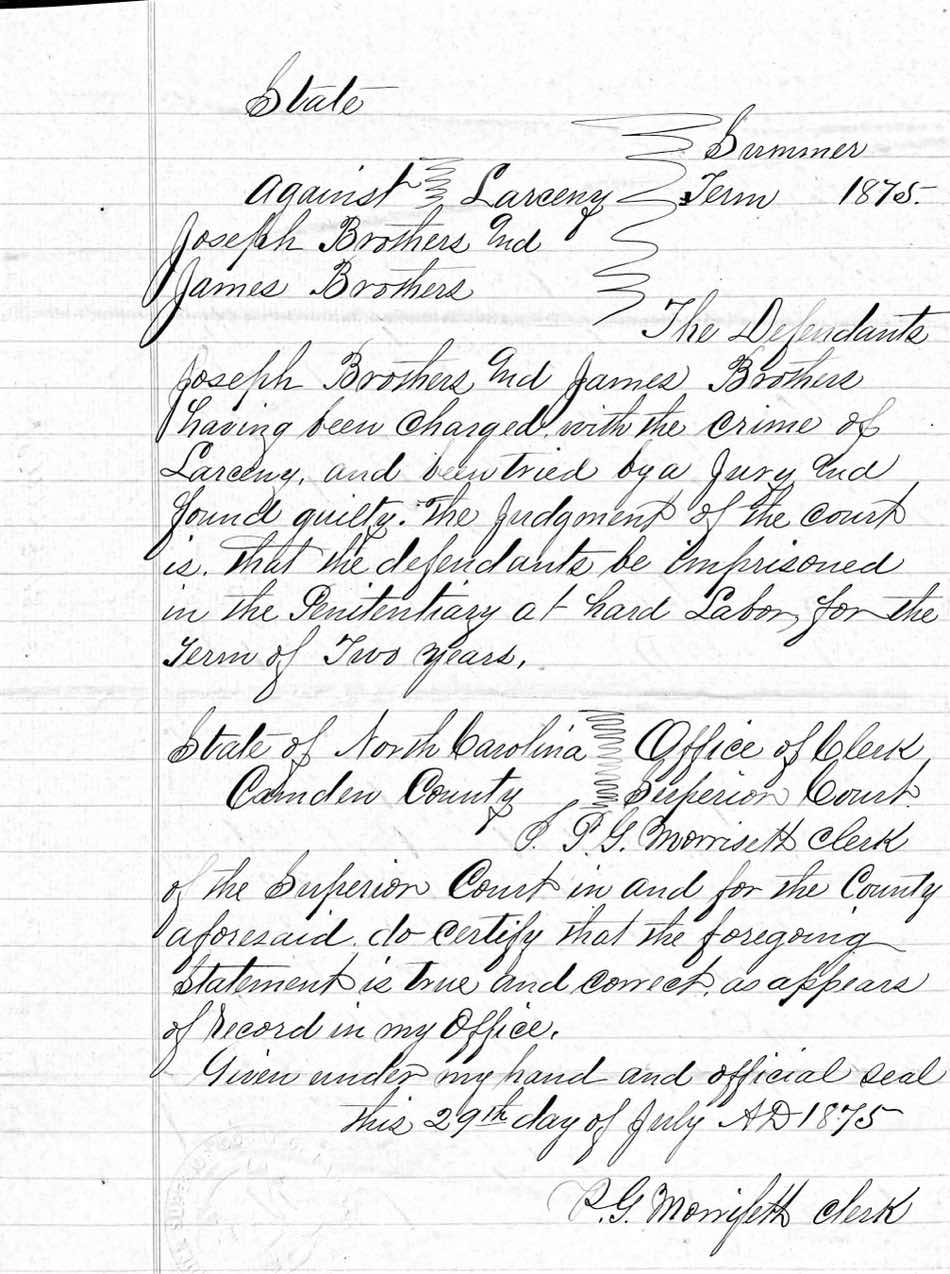 State
Summer
Against Larceny Term 1875.
Joseph Brothers And
James Brothers
The Defendants
Joseph Brothers And James Brothers
having been Charged. with the crime of
Larceny, and been tried by a Jury And
found guilty. The Judgment of the court
is. that the defendants be Imprisoned
in the Penitentiary at hard Labor, for the
Term of Two years.
State of North Carolina Office of Clerk
Camden County Superior Court.
I. P. G. Morrisett clerk
of the Superior Court in and for the County
aforesaid. do certify that the foregoing
Statement is true and correct. as appears
of record in my Office.
Given under my hand and official seal
this 29th day of July AD 1875
P. G. Morrisett clerk